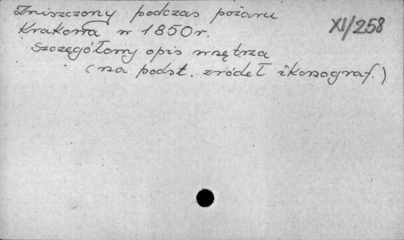 Zniszczony podczas pożaru
Krakowa w 1850r.
XI/258
Szczegółowy opis wnętrza
(na podst. źródeł ikonograf.)